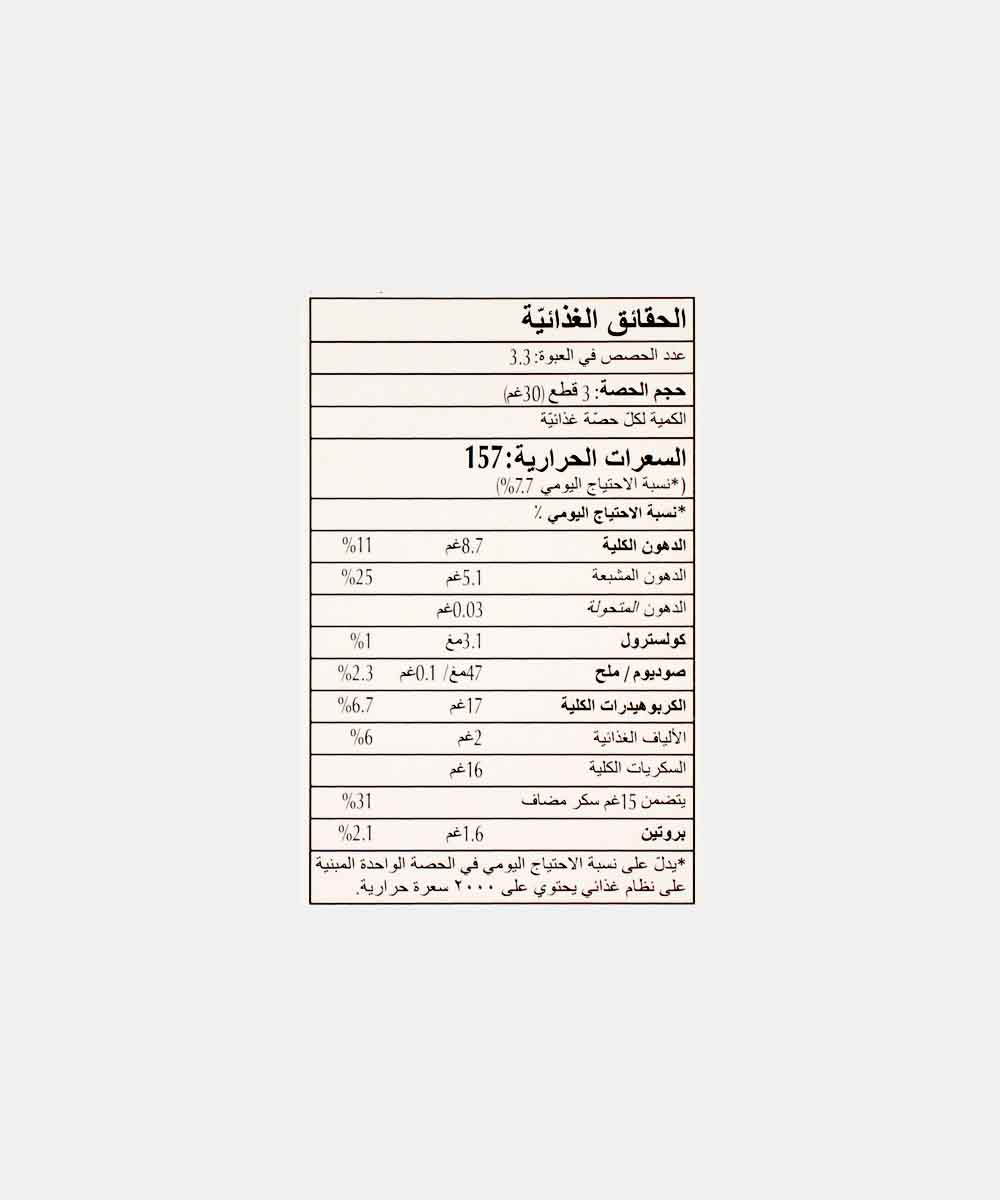 الحقائق الغذائيّة
عدد الحصص في العبوة: 3.3
حجم الحصة: 3 قطع (30غم)
الكمية لكلّ حصّة غذائيّة
السعرات الحرارية: 157
(*نسبة الاحتياج اليومي 7.7%)
*نسبة الاحتياج اليومي ٪
الدهون الكلية 8.7غم 11%
الدهون المشبعة 5.1غم 25%
الدهون المتحولة 0.03غم
كولسترول 3.1مغ 1%
صوديوم/ ملح 47مغ/ 0.1غم 2.3%
الكربوهيدرات الكلية 17غم 6.7%
الألياف الغذائية 2غم 6%
السكريات الكلية 16غم
يتضمن 15غم سكر مضاف 31%
بروتين 1.6غم 2.1%
*يدلّ على نسبة الاحتياج اليومي في الحصة الواحدة المبنية
على نظام غذائي يحتوي على ٢٠٠٠ سعرة حرارية.